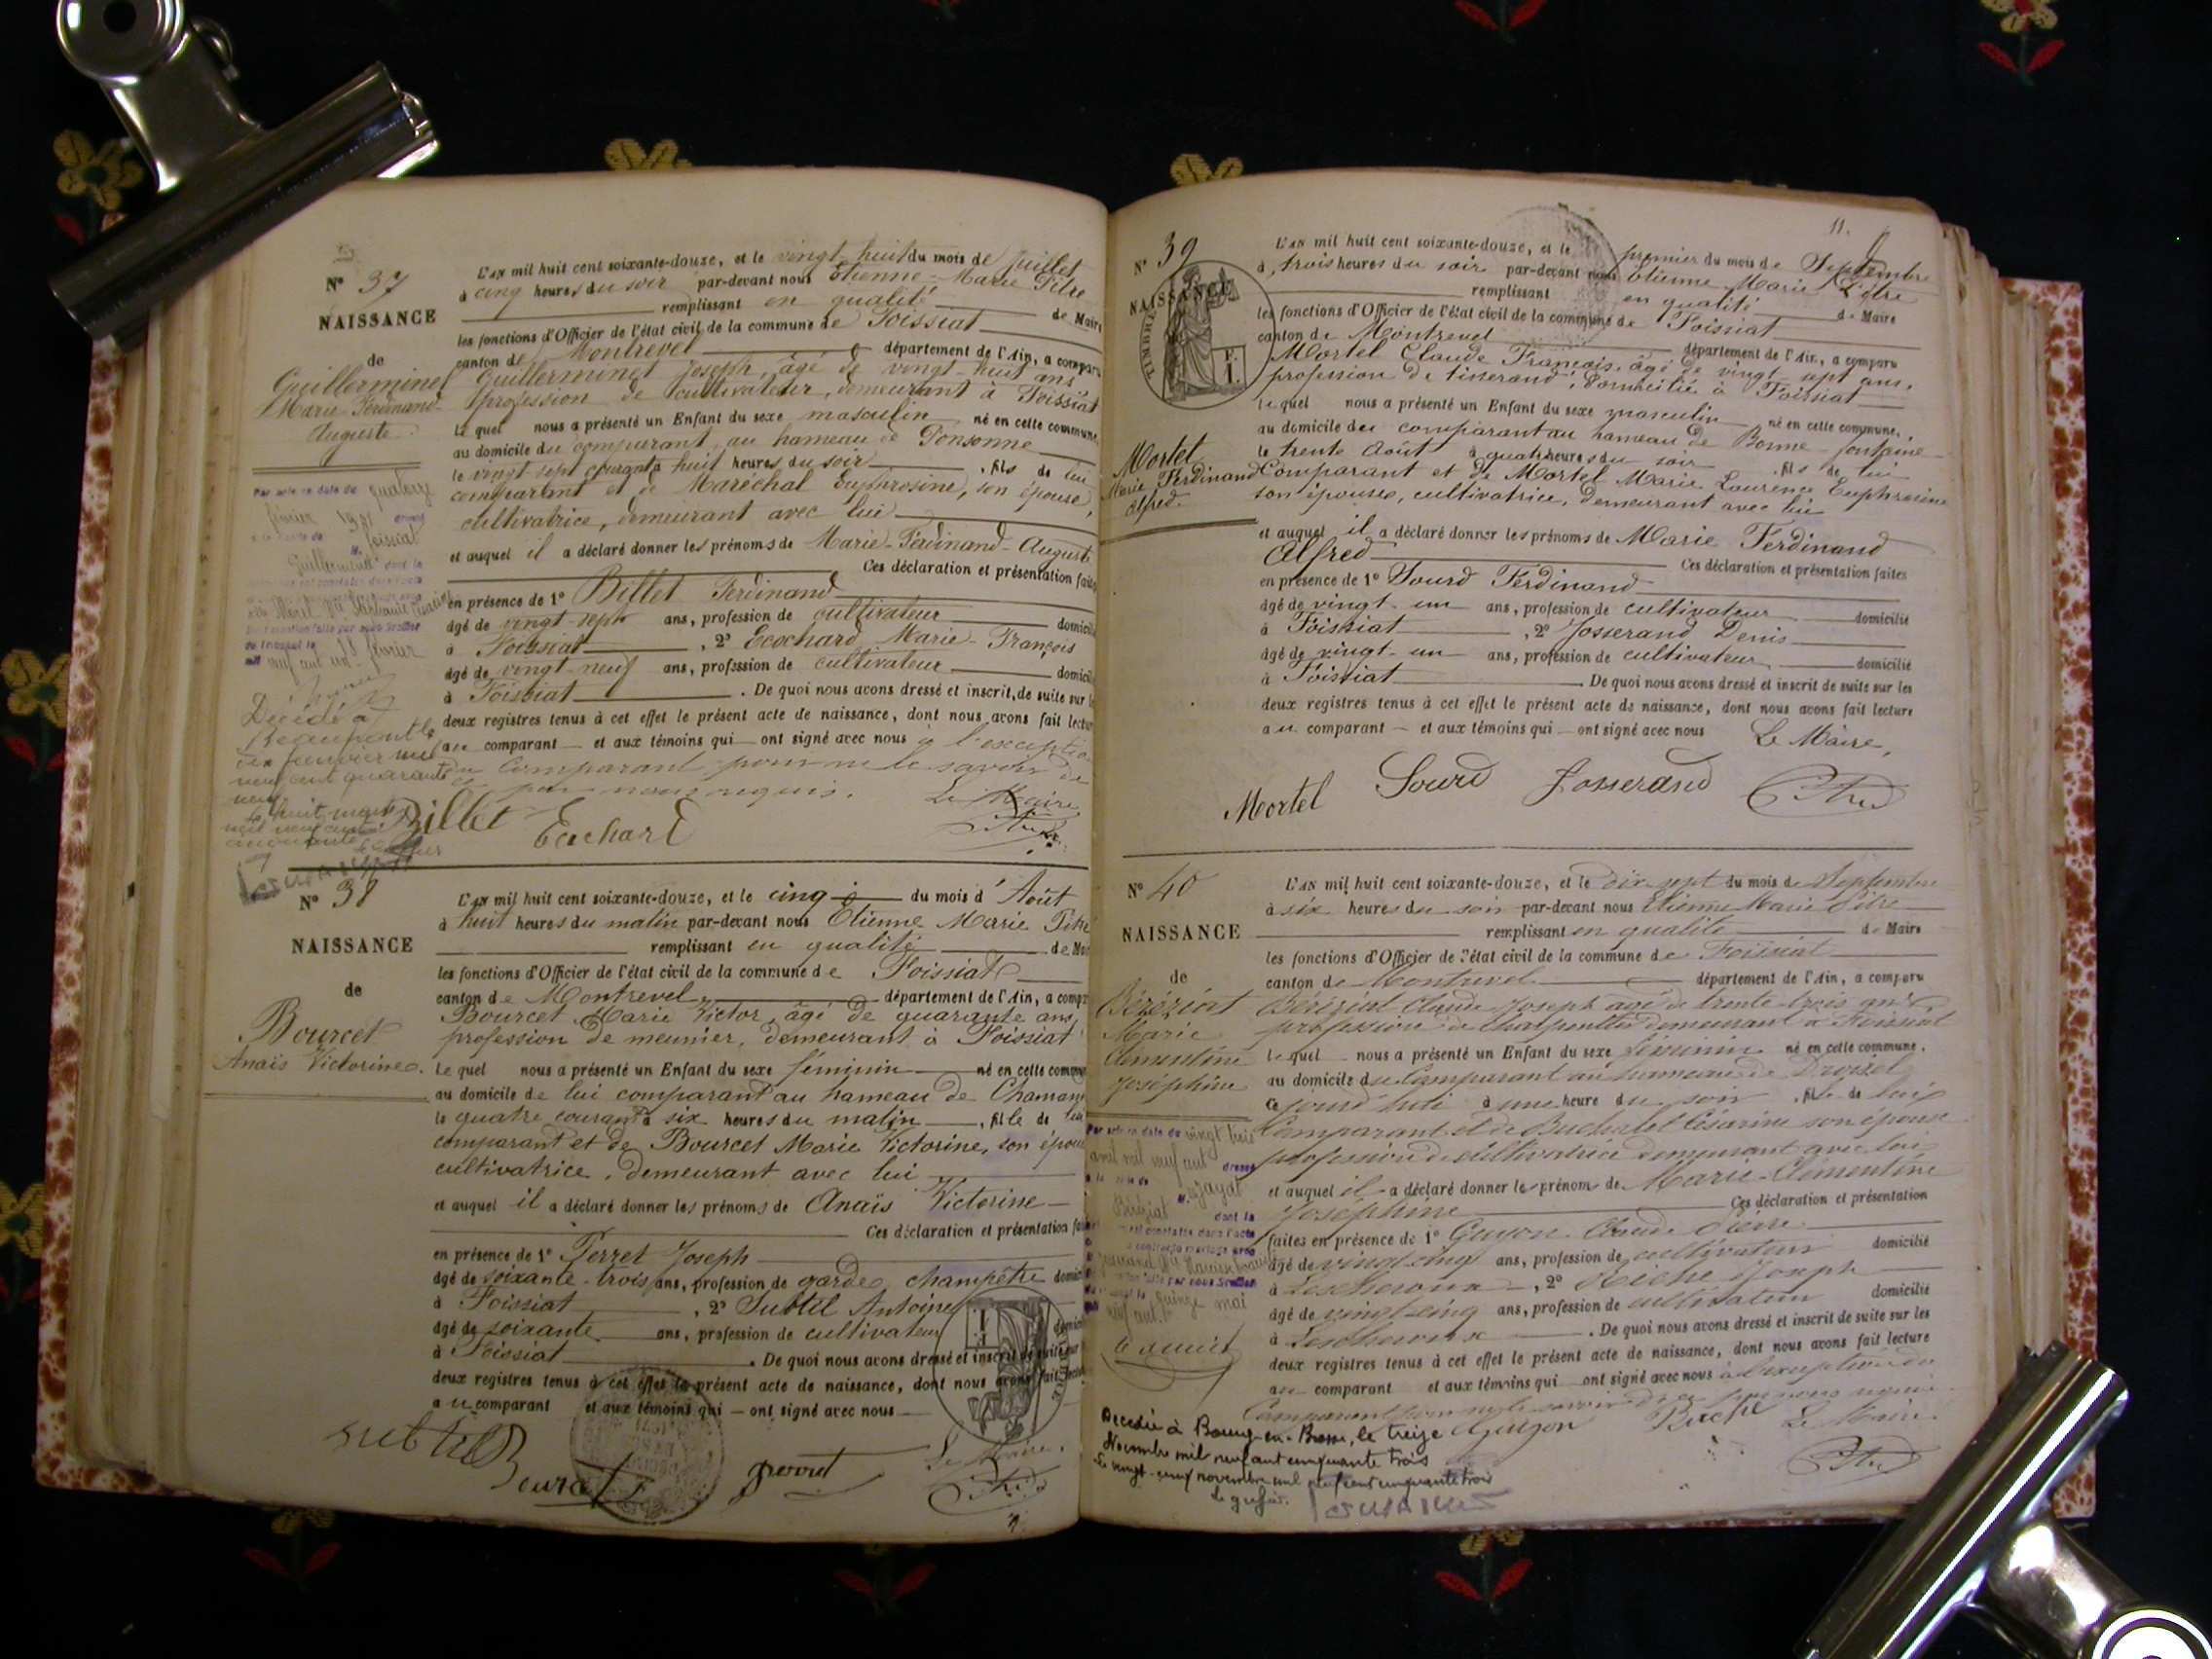 N° 37
NAISSANCE
de
Guillerminet
Marie-Ferdinand-
Auguste
L'an mil huit cent soixante-douze, et le vingt-huit du mois de juillet
à cinq heures du soir par-devant nous Etienne-Marie Pitre
remplissant en qualité de Maire
les fonctions d'Officier de l'état civil de la commune de Foissiat
canton de Montrevel département de l'Ain, a comparu
Guillerminet Joseph, âgé de vingt-huit ans
profession de cultivateur, demeurant à Foissiat
Lequel nous a présenté un Enfant du sexe masculin né en cette commune,
au domicile du comparant, au hameau de Ponsonne
le vingt sept courant à huit heures du soir, fils de lui
comparant et de Maréchal Euphrosine, son épouse,
cultivatrice, demeurant avec lui
et auquel il a déclaré donner les prénoms de Marie-Ferdinand-Auguste
Ces déclaration et présentation faites
en présence de 1° Billet Ferdinand
âgé de vingt-sept ans, profession de cultivateur domicilié
à Foissiat, 2° Ecochard Marie-François
âgé de vingt-neuf ans, profession de cultivateur domicilié
à Foissiat. De quoi nous avons dressé et inscrit, de suite sur les
deux registres tenus à cet effet le présent acte de naissance, dont nous avons fait lecture
au comparant et aux témoins qui ont signé avec nous à l'exception
du comparant pour ne le savoir de
ce par nous requis. Le Maire
Billet Ecochard
Par acte en date du quatorze
février
Foissiat
Décédé à
Beaupont le
janvier mil
neuf cent quarante
neuf
N° 38
NAISSANCE
de
Bourcet
Anaïs Victorine.
L'an mil huit cent soixante-douze, et le cinq du mois d'Août
à huit heures du matin par-devant nous Etienne Marie Pitre
remplissant en qualité de Mai
les fonctions d'Officier de l'état civil de la commune de Foissiat
canton de Montrevel département de l'Ain, a compa
Bourcet Marie Victor, âgé de quarante ans,
profession de meunier, demeurant à Foissiat
Lequel nous a présenté un Enfant du sexe féminin né en cette commune
au domicile de lui comparant au hameau de
le quatre courant à six heures du matin, fille de lui
comparant et de Bourcet Marie Victorine, son épouse
cultivatrice, demeurant avec lui
et auquel il a déclaré donner les prénoms de Anaïs Victorine
Ces déclaration et présentation fai
en présence de 1° Perret Joseph
âgé de soixante-trois ans, profession de garde champêtre domici
à Foissiat, 2° Subtil Antoine
âgé de soixante ans, profession de cultivateur
à Foissiat. De quoi nous avons dressé et inscrit de suite sur
deux registres tenus à cet effet le présent acte de naissance, dont nous avons fait lecture
au comparant et aux témoins qui ont signé avec nous
Subtil Bourcet perret Le Maire.
11.
N° 39
NAISSANCE
TIMBRE
Mortel
Marie Ferdinand
Alfred.
L'an mil huit cent soixante-douze, et le premier du mois de Septembre
à trois heures du soir par-devant nous Etienne Marie Pitre
remplissant en qualité de Maire
les fonctions d'Officier de l'état civil de la commune de Foissiat
canton de Montrevel département de l'Ain, a comparu
Mortel Claude François, âgé de vingt-sept ans,
profession de tisserand, domicilié à Foissiat
Lequel nous a présenté un Enfant du sexe masculin né en cette commune,
au domicile du comparant au hameau de Bonne-fontaine
le trente Août à quatre heures du soir, fils de lui
Comparant et de Mortel Marie Laurence Euphrosine
son épouse, cultivatrice, demeurant avec lui
et auquel il a déclaré donner les prénoms de Marie Ferdinand
Alfred Ces déclaration et présentation faites
en présence de 1° Sourd Ferdinand
âgé de vingt-un ans, profession de cultivateur domicilié
à Foissiat, 2° Josserand Denis
âgé de vingt-un ans, profession de cultivateur domicilié
à Foissiat. De quoi nous avons dressé et inscrit de suite sur les
deux registres tenus à cet effet le présent acte de naissance, dont nous avons fait lecture
au comparant et aux témoins qui ont signé avec nous Le Maire,
Mortel Sourd Josserand
N° 40
NAISSANCE
de
Béréziat
Marie
Clémentine
Joséphine
L'an mil huit cent soixante-douze, et le dix sept du mois de Septembre
à six heures du soir par-devant nous Etienne Marie Pitre
remplissant en qualité de Maire
les fonctions d'Officier de l'état civil de la commune de Foissiat
canton de Montrevel département de l'Ain, a comparu
Béréziat Claude Joseph âgé de trente-trois ans
profession de charpentier demeurant à Foissiat
Lequel nous a présenté un Enfant du sexe féminin né en cette commune.
au domicile du Comparant au hameau de
ce jourd'hui à une heure du soir, fille de lui
Comparant et de Buchalet Césarine son épouse
profession de cultivatrice demeurant avec lui
et auquel il a déclaré donner les prénoms de Marie-Clémentine
Joséphine Ces déclaration et présentation
faites en présence de 1° Guyon Claude Pierre
âgé de vingt cinq ans, profession de cultivateur domicilié
à Lescheroux, 2° Riche Joseph
âgé de vingt cinq ans, profession de cultivateur domicilié
à Lescheroux. De quoi nous avons dressé et inscrit de suite sur les
deux registres tenus à cet effet le présent acte de naissance, dont nous avons fait lecture
au comparant et aux témoins qui ont signé avec nous à l'exception du
Comparant pour ne le savoir de ce par nous requis.
Guyon Riche Le Maire
Par acte en date du vingt trois
avril mil neuf cent dressé
Béréziat dont la
quinze mai
Décédée à Bourg-en-Bresse, le treize
Novembre mil neuf cent cinquante trois
Le vingt-cinq novembre mil neuf cent cinquante trois
Le greffier.